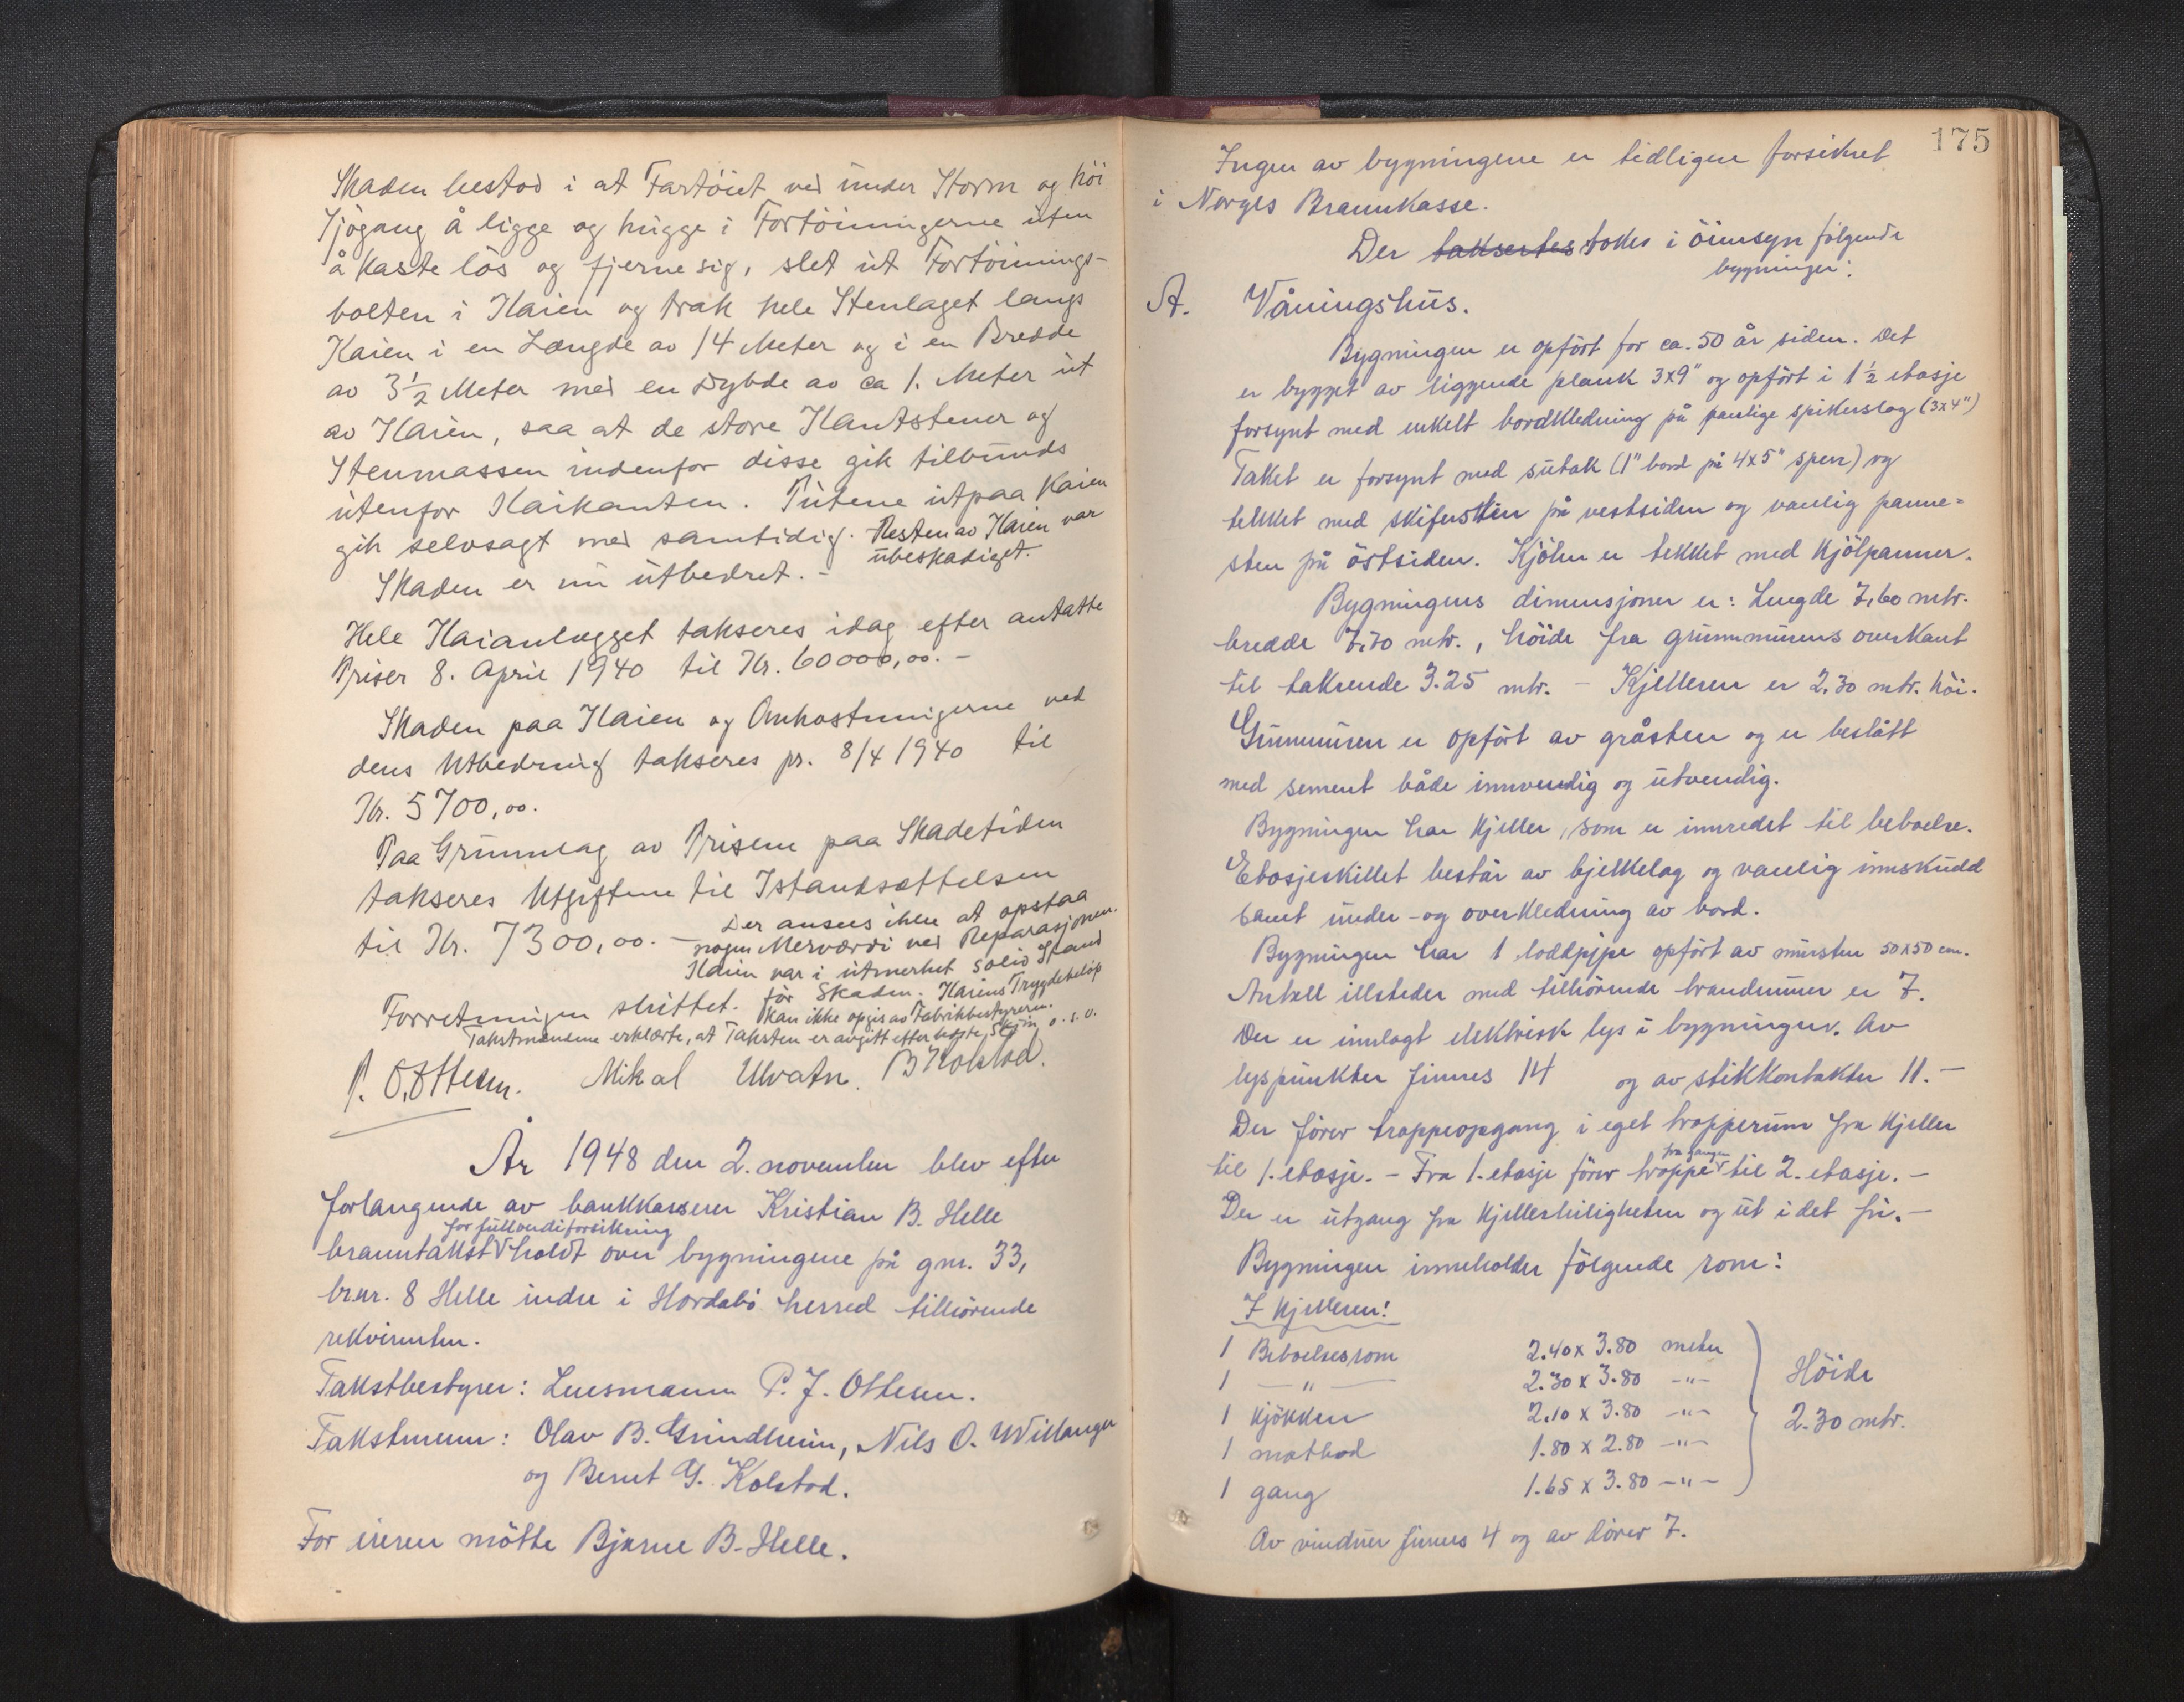 Skaden bestod i at Fartöiet ved under Storm og höi
Sjögang å ligge og hugge i Fortöiningerne uten
å kaste lös og fjerne sig, slet ut Fortöinings-
bolten i Kaien og trak hele Stenlaget langs
Kaien i en Længde av 14 Meter og i en Bredde
av 3½ Meter med en Dybde av ca 1. Meter ut
av Kaien, saa at de store Kantstener og
Stenmassen indenfor disse gik tilbunds
utenfor Kaikanten. Putene utpaa Kaien
gik selvsagt med samtidig. Resten av Kaien var
ubeskadiget.
Skaden er nu utbedret. -
Hele Kaianlægget takseres idag efter antatte
Priser 8. April 1940 til Kr. 60000,00. -
Skaden paa Kaien og Omkostningerne ved
dens Utbedring takseres pr. 8/4 1940 til
Kr. 5700,00.
Paa Grunnlag av Prisene paa Skadetiden
takseres Utgiftene til Istandsættelsen
til Kr. 7300,00. - Der ansees ikke at opstaa
nogen Merværdi ved Reparasjonen.
Kaien var i utmerket solid Stand
för Skaden. Kaiens Trygdebelöp
kan ikke opgis av Fabrikbestyreren.
Forretningen sluttet.
Takstmendene erklærte, at Taksten er avgitt efter beste Skjön o.s.v.
P. O. Ottesen. Mikal Ulvatn. B Kolstad.
År 1948 den 2. november blev efter
forlangende av bankkasserer Kristian B. Helle
for fullverdiforsikring
branntakst holdt over bygningene på gnr. 33,
br.nr. 8 Helle indre i Hordabö herred tilhörende
rekvirenten.
Takstbestyrer: Lensmann P. J. Ottesen.
Takstmenn: Olav B. Grindheim, Nils O. Willanger
og Bernt G. Kolstad.
For eieren mötte Bjarne B. Helle.
175
Ingen av bygningene er tidligere forsikret
i Norges Brannkasse.
Der taksertes tokes i öiensyn fölgende
bygninger:
A. Våningshus.
Bygningen er opfört for ca. 50 år siden. Det
er bygget av liggende plank 3x9" og opfört i 1½ etasje
forsynt med enkelt bordkledning på panlige spikerslag (3x4")
Taket er forsynt med sutak (1" bord på 4x5" sperr) og
tekket med skifersten på vestsiden og vanlig panne=
sten på östsiden. Kjölen er tekket med kjölpanner.
Bygningens dimensjoner er: Lengde 7,60 mtr.
bredde 7,70 mtr., höide fra grunnmurens overkant
til takrende 3.25 mtr. - Kjelleren er 2.30 mtr. höi.
Grunnmuren er opfört av gråsten og er beslått
med sement både innvendig og utvendig.
Bygningen har kjeller, som er innredet til beboelse.
Etasjeskillet består av bjelkelag og vanlig innskudd
samt under- og overkledning av bord.
Bygningen har 1 loddpipe opfört av mursten 50x50 cm.
Antall illsteder med tilhörende brandmur er 7.
Der er innlagt elektrisk lys i bygningen. Av
lyspunkter finnes 14 og av stikkontakter 11. -
Der förer trappeopgang i eget trapperum fra kjeller
fra gangen
til 1. etasje. - Fra 1. etasje förer trappe til 2. etasje. -
Der er utgang fra kjellerleiligheten og ut i det fri. -
Bygningen inneholder fölgende rom:
I kjelleren:
1 Beboelsesrom 2.40 x 3.80 meter
1 — " — 2.30 x 3.80 -"-
1 kjökken 2.10 x 3.80 -"-
1 matbod 1.80 x 2.80 -"-
1 gang 1.65 x 3.80 -"-
Höide
2.30 mtr.
Av vinduer finnes 4 og av dörer 7.